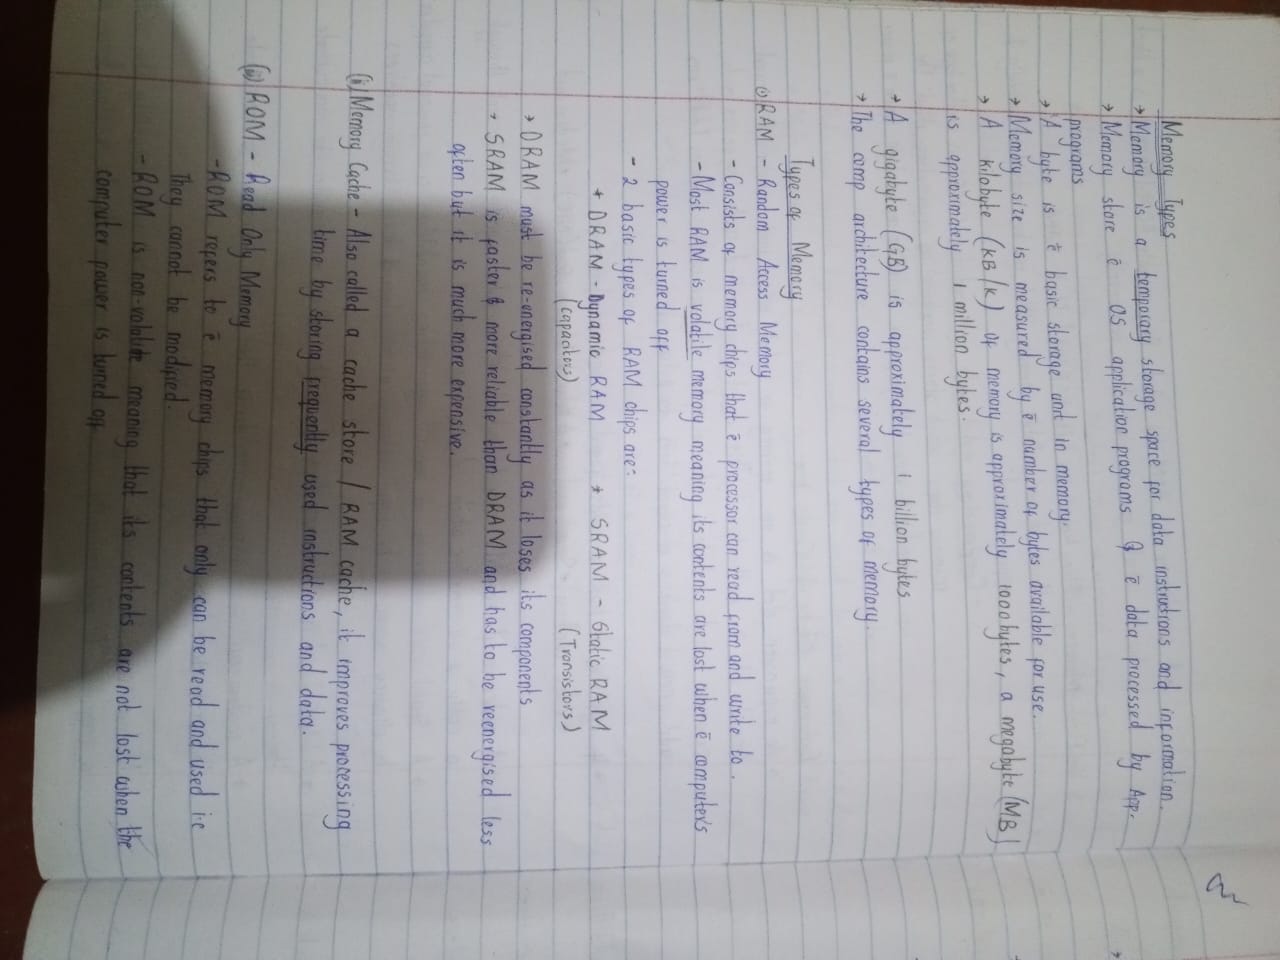 Memory Types
→ Memory is a temporary storage space for data instructions and information.
→ Memory store ē OS application programs & ē data processed by App.
programs
→ A byte is ē basic storage unit in memory.
→ Memory size is measured by ē number of bytes available for use.
→ A kilobyte (KB/K) of memory is approximately 1000 bytes, a megabyte (MB)
is approximately 1 million bytes.
→ A gigabyte (GB) is approximately 1 billion bytes
→ The comp architecture contains several types of memory.
Types of Memory
(i) RAM - Random Access Memory
- Consists of memory chips that ē processor can read from and write to.
- Most RAM is volatile memory meaning its contents are lost when ē computer's
power is turned off
- 2 basic types of RAM chips are:
* DRAM - Dynamic RAM * SRAM - Static RAM
(capacitors) (Transistors)
→ DRAM must be re-energised constantly as it loses its components
→ SRAM is faster & more reliable than DRAM and has to be reenergised less
often but it is much more expensive.
(ii) Memory Cache - Also called a cache store / RAM cache, it improves processing
time by storing frequently used instructions and data.
(iii) ROM - Read Only Memory
- ROM refers to ē memory chips that only can be read and used i.e
They cannot be modified.
- ROM is non-volatile meaning that its contents are not lost when the
computer power is turned off